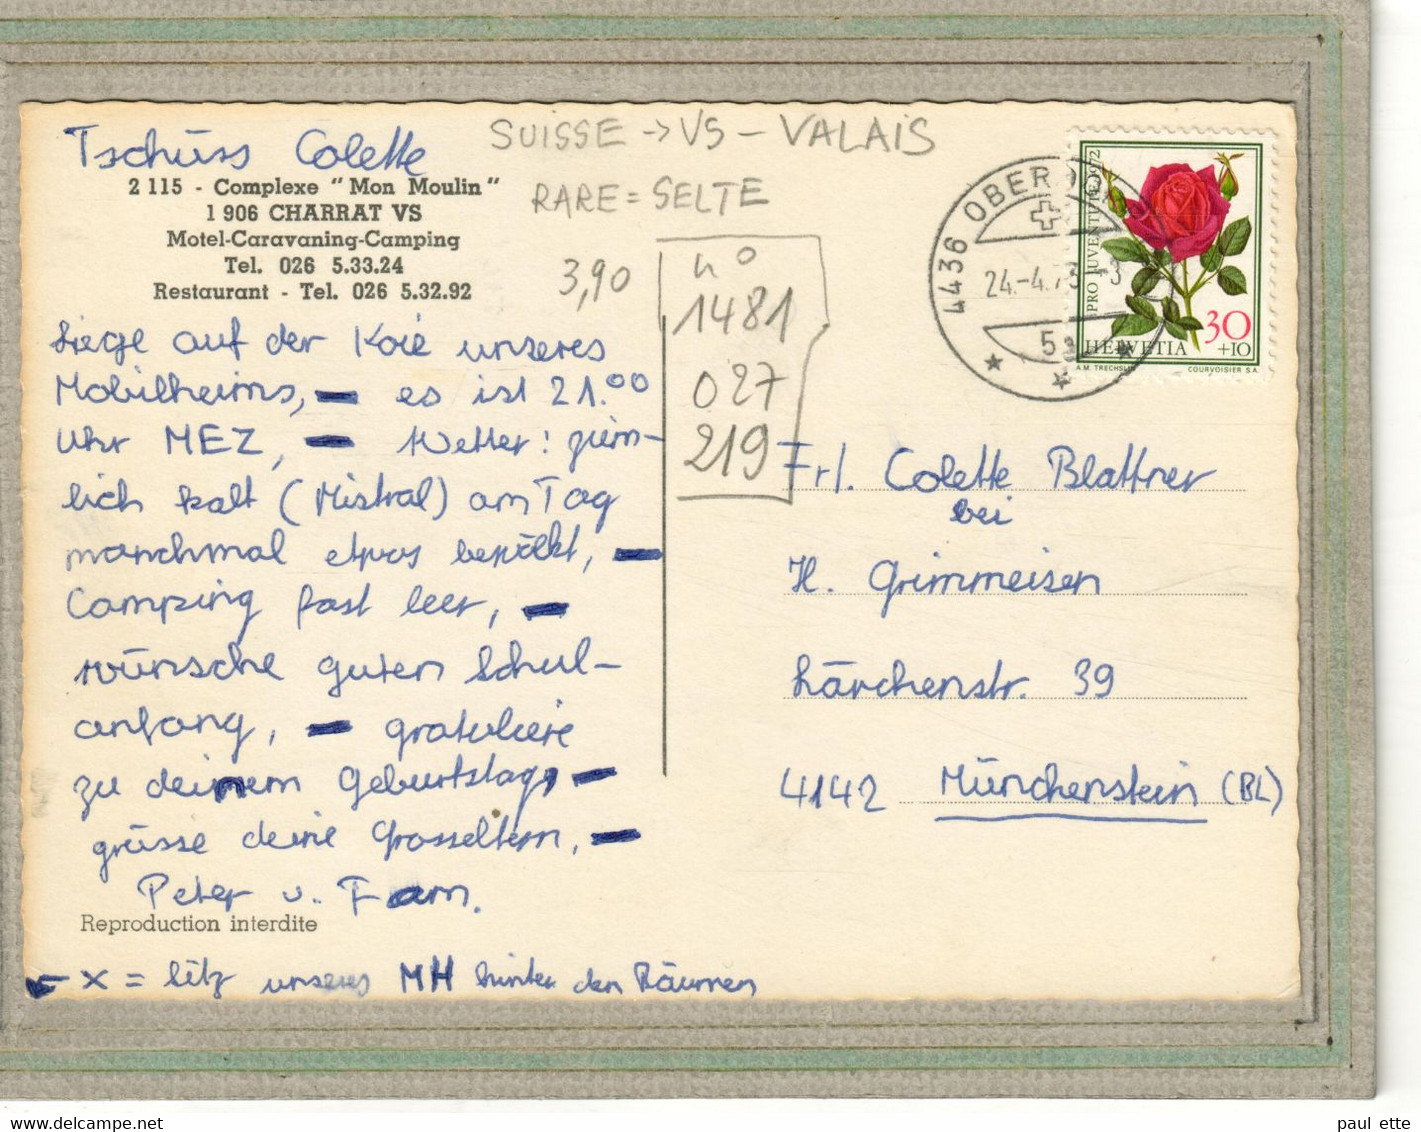 Tschüss Colette
2 115 - Complexe "Mon Moulin"
1 906 CHARRAT VS
Motel-Caravaning-Camping
Tel. 026 5.33.24
Restaurant - Tel. 026 5.32.92
liege auf der Koie unseres
Mobilheims, — es ist 21.00
Uhr MEZ, — Wetter: ziem-
lich kalt (Mistral) am Tag
manchmal etwas bewölkt, —
Camping fast leer, —
wünsche guten Schul-
anfang, — gratuliere
zu deinem Geburtstag, —
grüsse deine Grosseltern, —
Peter u. Fam.
Reproduction interdite
← x = Sitz unseres MH hinter den Bäumen
SUISSE -> VS - VALAIS
RARE = SELTE
3,90
n°
1481
027
219
4436 OBERD
24.-4.73
5
PRO JUVENTUTE 1972
30
+10
HELVETIA
A.M. TRECHSLIN
COURVOISIER S.A.
Frl. Colette Blattner
bei
H. Grimmeisen
Lärchenstr. 39
4142 Münchenstein (BL)
www.delcampe.net
paul ette